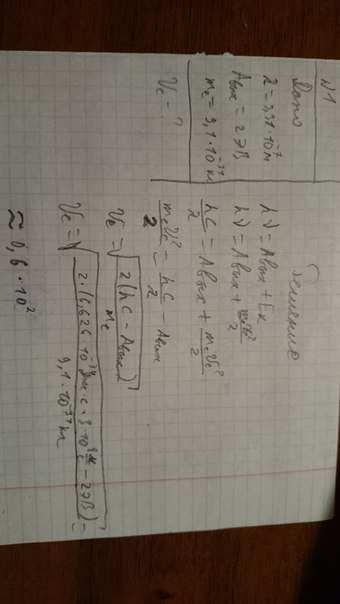 №1
Дано
λ = 3,31·10⁻⁷ м
Aвых = 2 эВ
mₑ = 9,1·10⁻³¹ кг
Vₑ - ?
Решение
hν = Aвых + Eк
hν = Aвых + mₑVₑ²/2
hc/λ = Aвых + mₑVₑ²/2
mₑVₑ²/2 = hc/λ - Aвых
Vₑ = √(2(hc - Aвых)/mₑ)
Vₑ = √(2·(6,626·10⁻³⁴ Дж·с·3·10⁸ м/с - 2эВ)/9,1·10⁻³¹ кг) =
≈ 8,6·10²